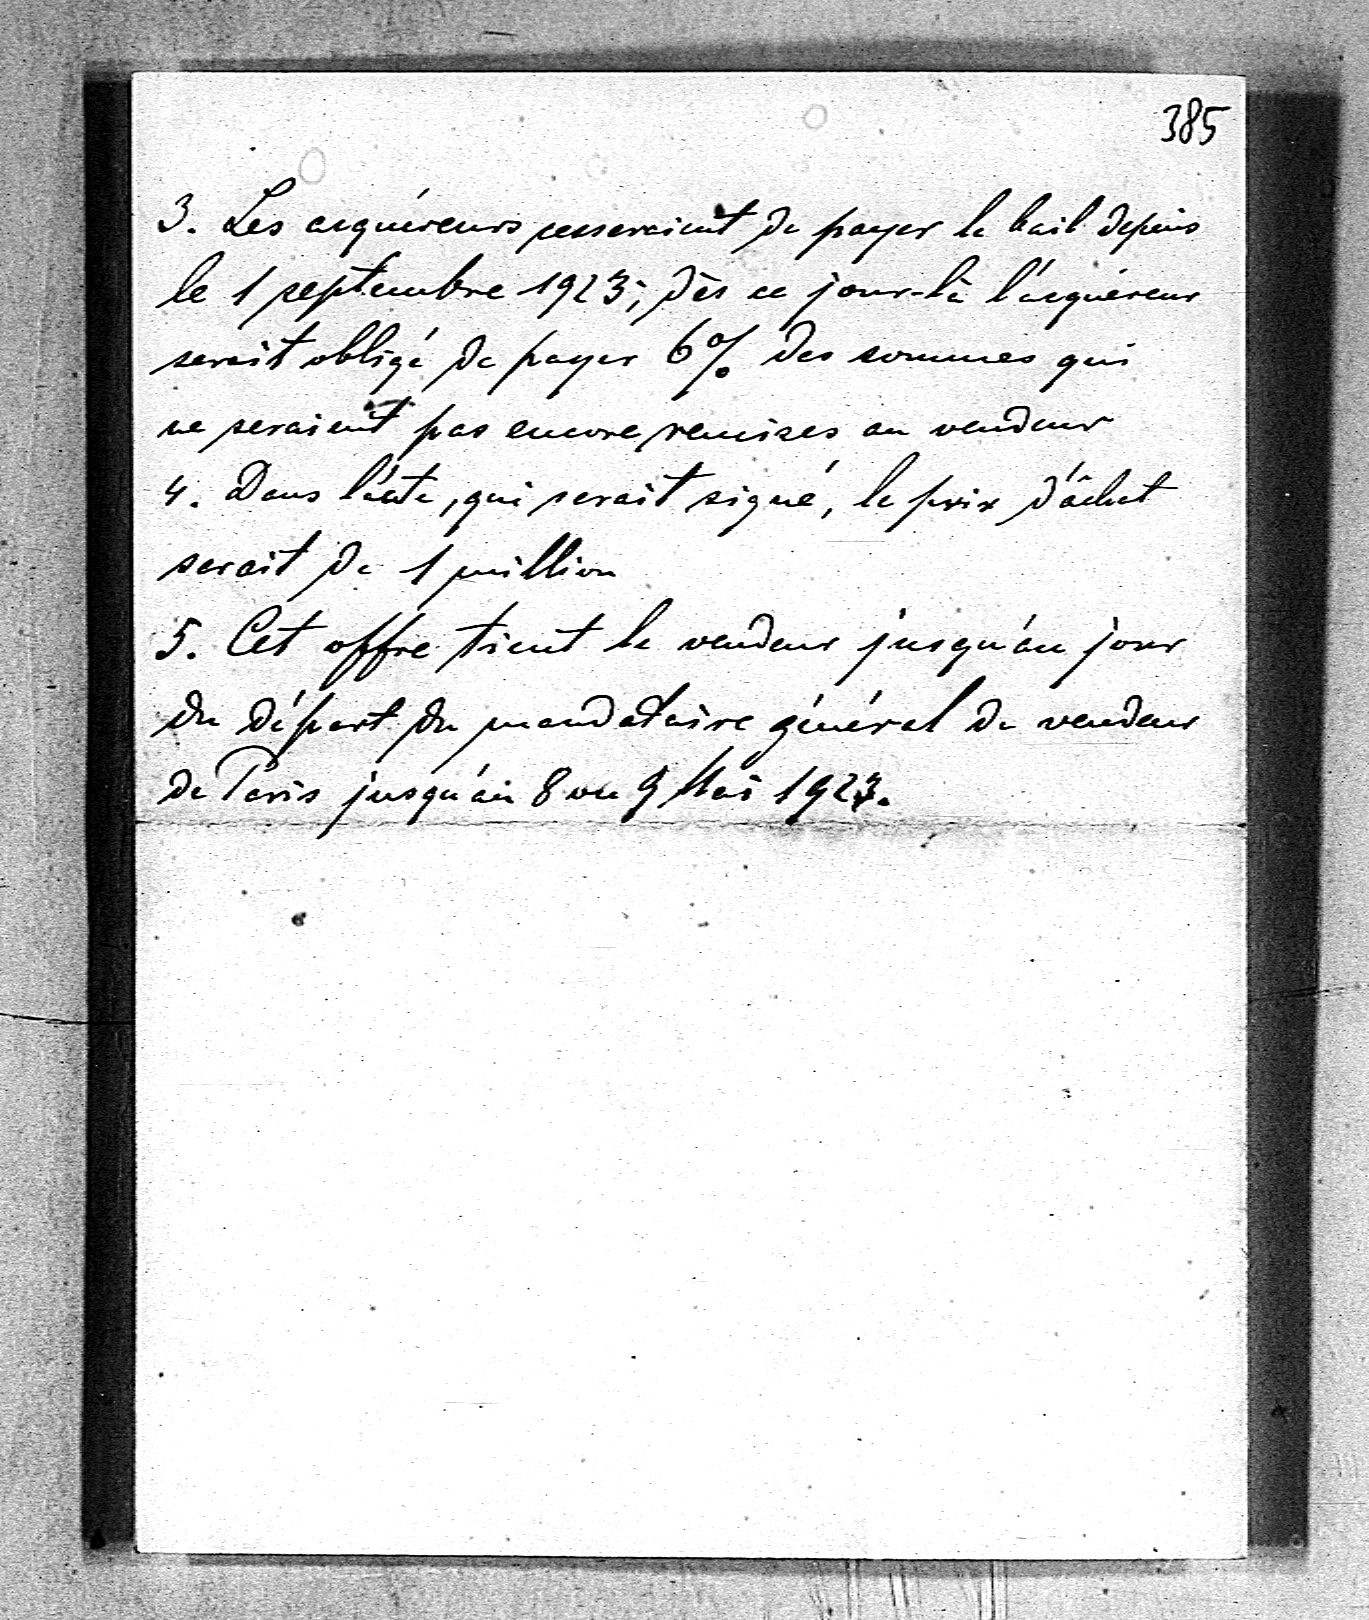 385
3. Les acquéreurs cesseraient de payer le bail depuis
le 1 septembre 1923; dès ce jour-là l'acquéreur
serait obligé de payer 6% des sommes qui
ne seraient pas encore remises au vendeur
4. Dans l'acte, qui serait signé, le prix d'achat
serait de 1 million
5. Cet offre tient le vendeur jusqu'au jour
du départ du mandataire général de vendeur
de Paris jusqu'au 8 ou 9 Mai 1923.